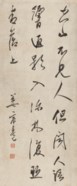 空山不見人但聞人語
響返影入深林復照
青苔上